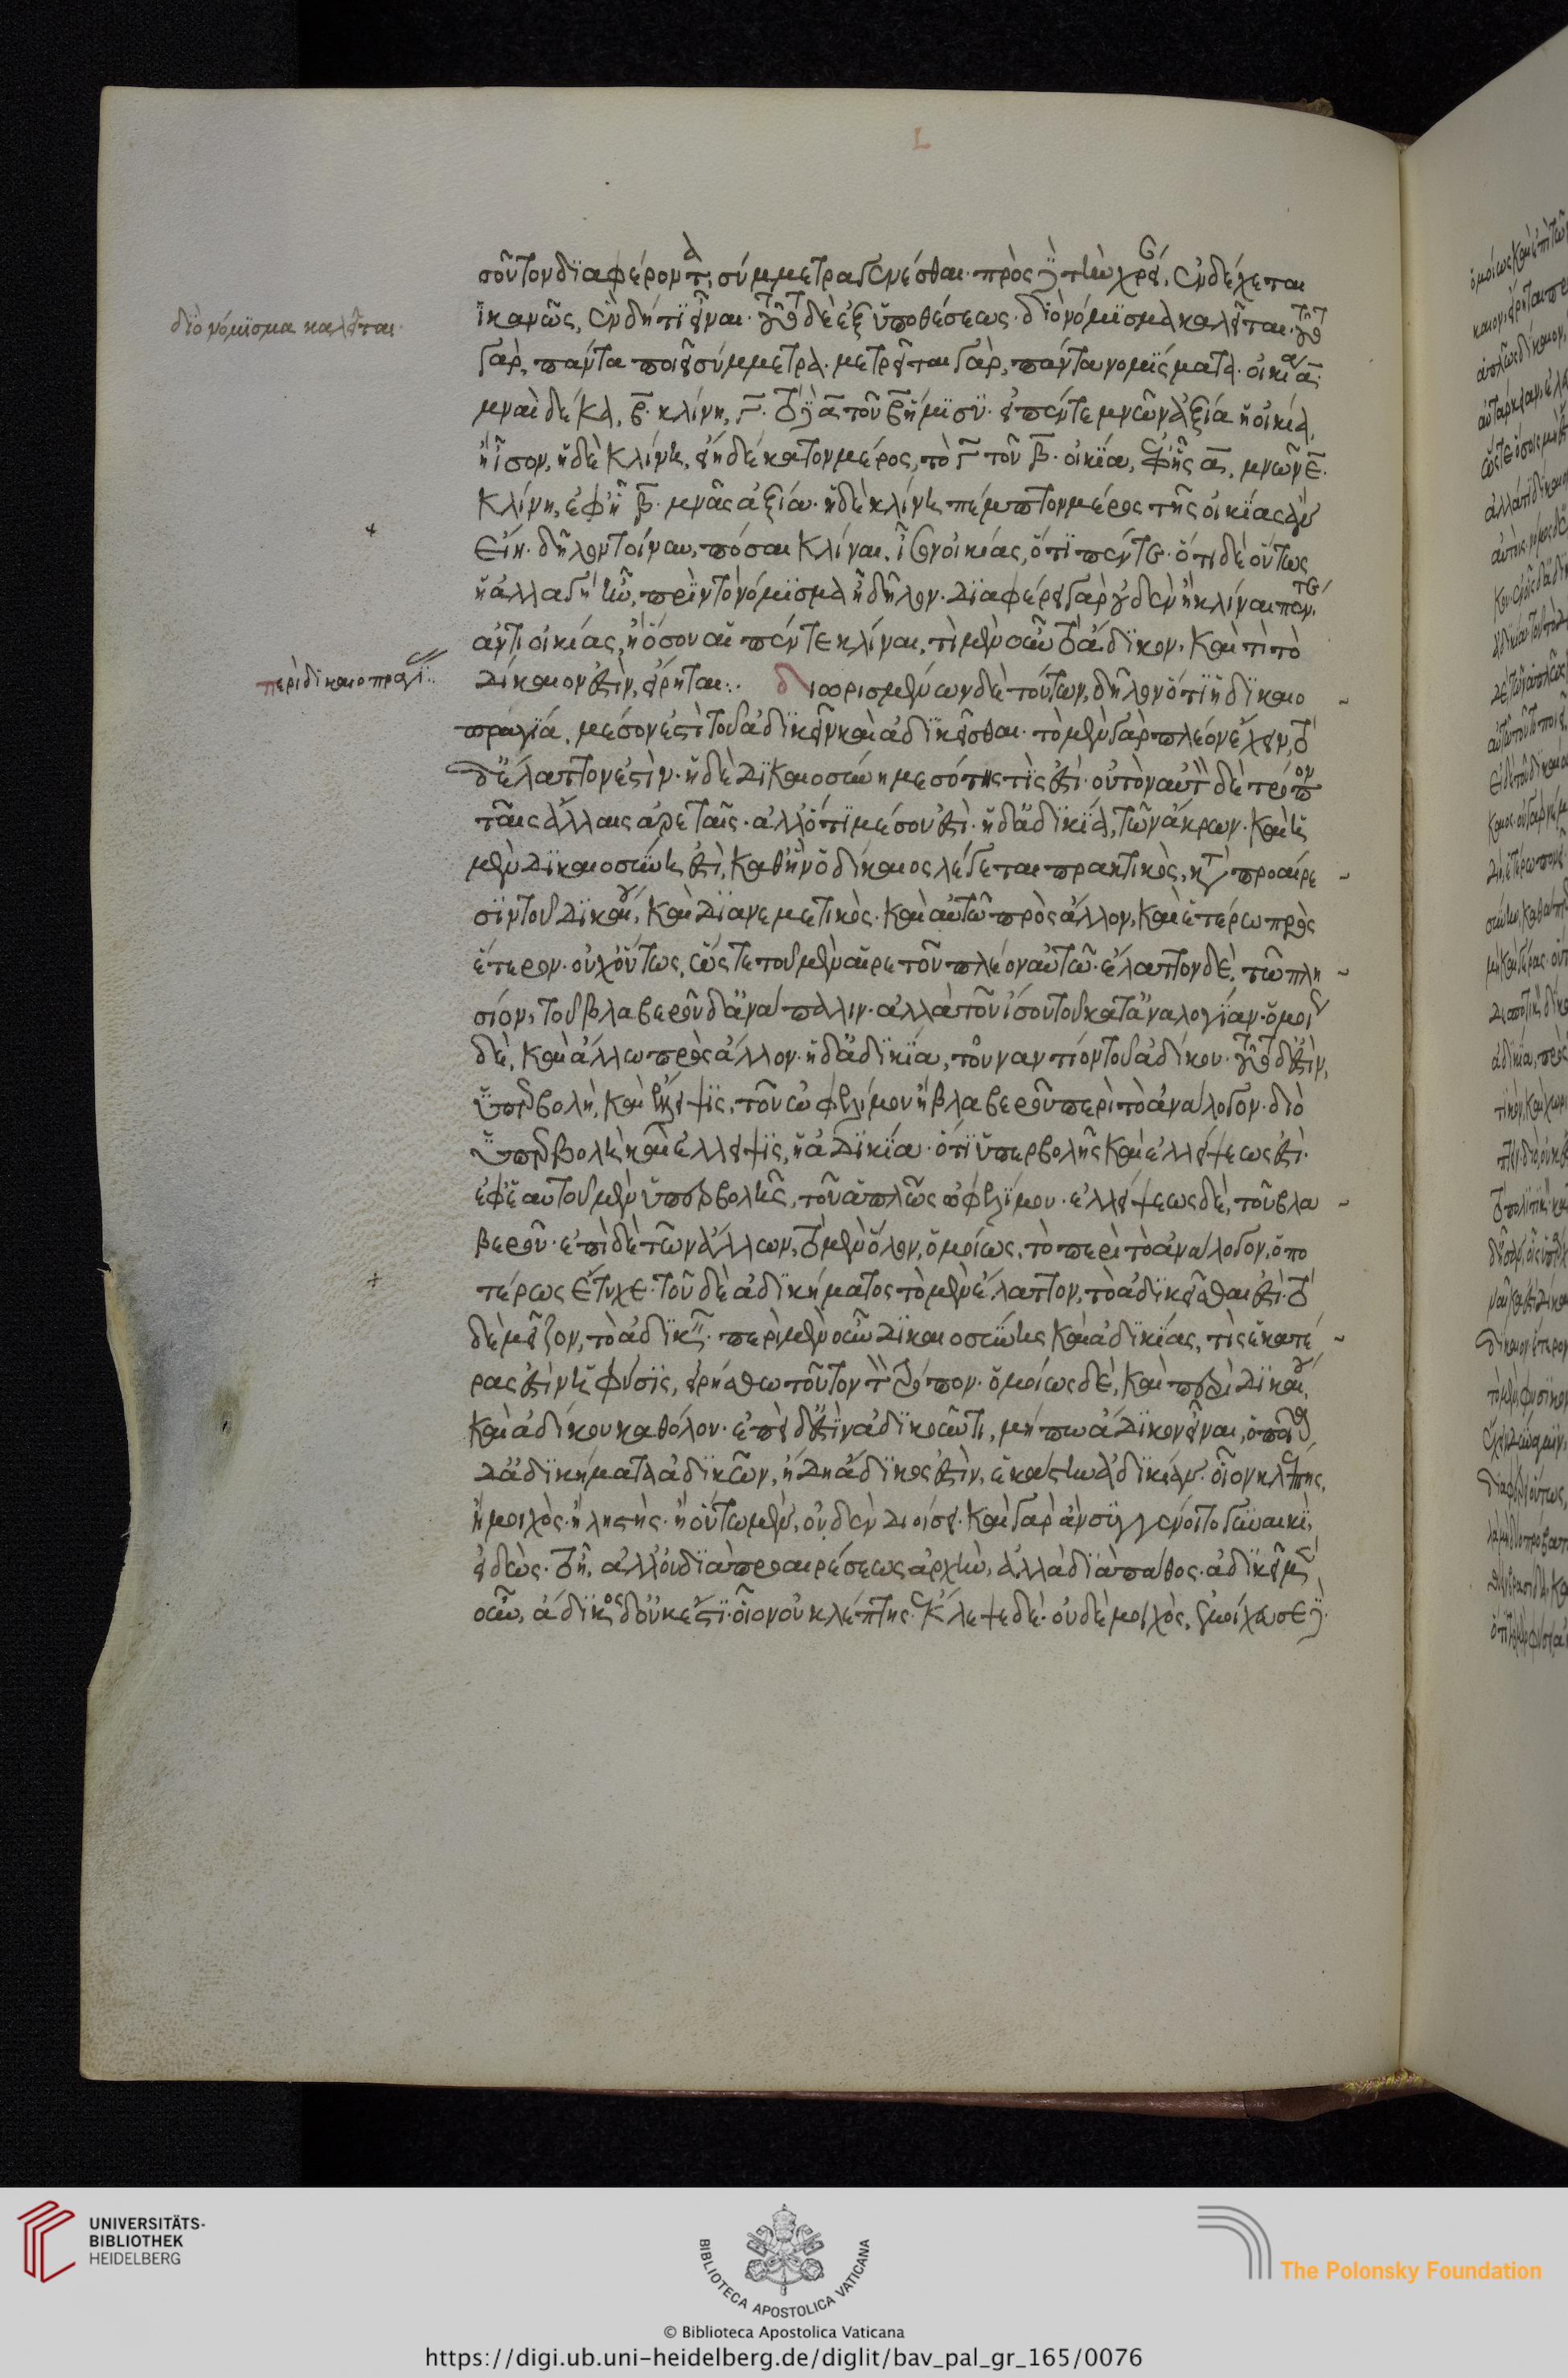 L
σοῦτον διαφέροντα, σύμμετρα γενέσθαι· πρὸς δὲ τὴν χρείαν, ἐνδέχεται
διὸ νόμισμα καλεῖται·
ἱκανῶς, ἓν δή τι εἶναι· τοῦτο δὲ ἐξ ὑποθέσεως· διὸ νόμισμα καλεῖται· τοῦτο
γὰρ, πάντα ποιεῖ σύμμετρα· μετρεῖται γὰρ, πάντα νομίσματι· οἰκία α·
μναῖ δέκα, β· κλίνη, γ· τὸ δὴ α τοῦ β ἥμισυ· εἰ πέντε μνῶν ἀξία ἡ οἰκία,
ἢ ἴσον, ἡ δὲ κλίνη, δέκατον μέρος, τὸ γ τοῦ β· οἰκία, ἐφ' ἧς α, μνῶν ε·
κλίνη, ἐφ' ἧ β· μνᾶς ἀξία· ἡ δὲ κλίνη πέμπτον μέρος τῆς οἰκίας ἂν
εἴη· δῆλον τοίνυν, πόσαι κλίναι, ἴσον οἰκίας, ὅτι πέντε· ὅτι δὲ οὕτως
ἡ ἀλλαγὴ ἦν, πρὶν τὸ νόμισμα ἦ δῆλον· διαφέρει γὰρ οὐδὲν ἢ κλίναι πέντε
ἀντὶ οἰκίας, ἢ ὅσου αἱ πέντε κλίναι, τί μὲν οὖν τὸ ἄδικον· καὶ τί τὸ
περὶ δικαιοπραγί
δίκαιον ἐστὶν, εἴρηται·. διωρισμένων δὲ τούτων, δῆλον ὅτι ἡ δικαιο
πραγία, μέσον ἐστὶ τοῦ ἀδικεῖν καὶ ἀδικεῖσθαι· τὸ μὲν γὰρ πλέον ἔχειν, τὸ
δ' ἔλαττον ἐστίν· ἡ δὲ δικαιοσύνη μεσότης τίς ἐστι· οὐ τὸν αὐτὸν δὲ τρόπον
ταῖς ἄλλαις ἀρεταῖς· ἀλλ' ὅτι μέσου ἐστὶ· ἡ δ' ἀδικία, τῶν ἄκρων· καὶ ἡ
μὲν δικαιοσύνη ἐστὶ, καθ' ἣν ὁ δίκαιος λέγεται πρακτικὸς, κατὰ προαίρε
σιν τοῦ δικαίου, καὶ διανεμετικὸς· καὶ αὐτῶ πρὸς ἄλλον, καὶ ἑτέρω πρὸς
ἕτερον· οὐχ οὕτως, ὥστε τοῦ μὲν αἱρετοῦ πλέον αὐτῶ· ἔλαττον δὲ, τῶ πλη
σίον, τοῦ βλαβεροῦ δ' ἀνάπαλιν· ἀλλὰ τοῦ ἴσου τοῦ κατ' ἀναλογίαν· ὁμοίως
δὲ, καὶ ἄλλω πρὸς ἄλλον· ἡ δ' ἀδικία, τοὐναντίον τοῦ ἀδίκου· τοῦτο δ' ἐστὶν,
ὑπερβολὴ, καὶ ἔλλειψις, τοῦ ὠφελίμου ἢ βλαβεροῦ περὶ τὸ ἀνάλογον· διὸ
ὑπερβολὴ καὶ ἔλλειψις, ἡ ἀδικία· ὅτι ὑπερβολῆς καὶ ἐλλείψεως ἐστί·
ἐφ' ἑαυτοῦ μὲν ὑπερβολῆς, τοῦ ἁπλῶς ὠφελίμου· ἐλλείψεως δὲ, τοῦ βλα
βεροῦ· ἐπὶ δὲ τῶν ἄλλων, τὸ μὲν ὅλον, ὁμοίως, τὸ περὶ τὸ ἀνάλογον, ὁπο
τέρως ἔτυχε· τοῦ δὲ ἀδικήματος τὸ μὲν ἔλαττον, τὸ ἀδικεῖσθαι ἐστὶ· τὸ
δὲ μεῖζον, τὸ ἀδικεῖν· περὶ μὲν οὖν δικαιοσύνης καὶ ἀδικίας, τίς ἑκατέ
ρας ἐστὶν ἡ φύσις, εἰρήσθω τοῦτον τὸν τρόπον· ὁμοίως δὲ, καὶ περὶ δικαίου,
καὶ ἀδίκου καθόλου· ἐπεὶ δ' ἔστιν ἀδικοῦντι, μήπω ἄδικον εἶναι, ὁ ποῖα
δ' ἀδικήματα ἀδικῶν, ἤδη ἄδικος ἐστὶν, ἑκάστην ἀδικίαν· οἷον κλέπτης,
ἢ μοιχὸς· ἢ ληστὴς· ἢ οὕτω μὲν, οὐδὲν διοίσει· καὶ γὰρ ἂν συγγένοιτο γυναικὶ,
εἰδὼς· τὸ ἧ, ἀλλ' οὐ διὰ προαιρέσεως ἀρχὴν, ἀλλὰ διὰ πάθος· ἀδικεῖ μὲν
οὖν, ἄδικος δ' οὐκ ἔστι· οἷον οὐ κλέπτης· ἔκλεψε δέ· οὐδὲ μοιχὸς, ἐμοίχευσε δὲ·
UNIVERSITÄTS-
BIBLIOTHEK
HEIDELBERG
BIBLIOTECA APOSTOLICA VATICANA
The Polonsky Foundation
© Biblioteca Apostolica Vaticana
https://digi.ub.uni-heidelberg.de/diglit/bav_pal_gr_165/0076